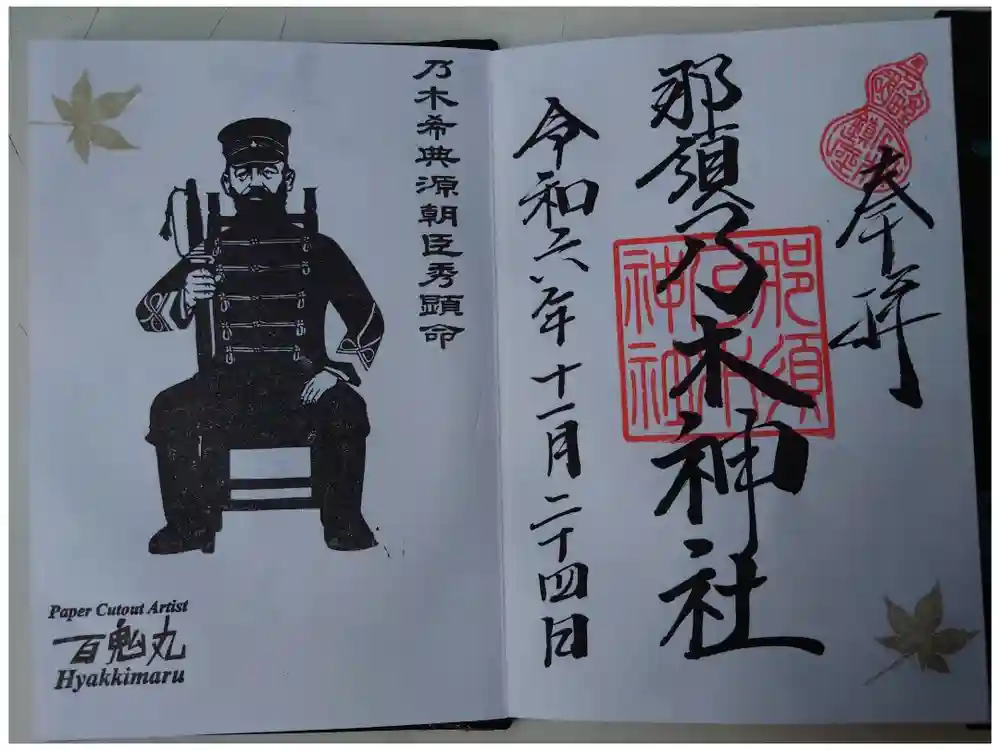 奉拝
那須乃木神社
那須
神社
令和六年十一月二十四日
乃木希典源朝臣秀顕命
Paper Cutout Artist
百鬼丸
Hyakkimaru